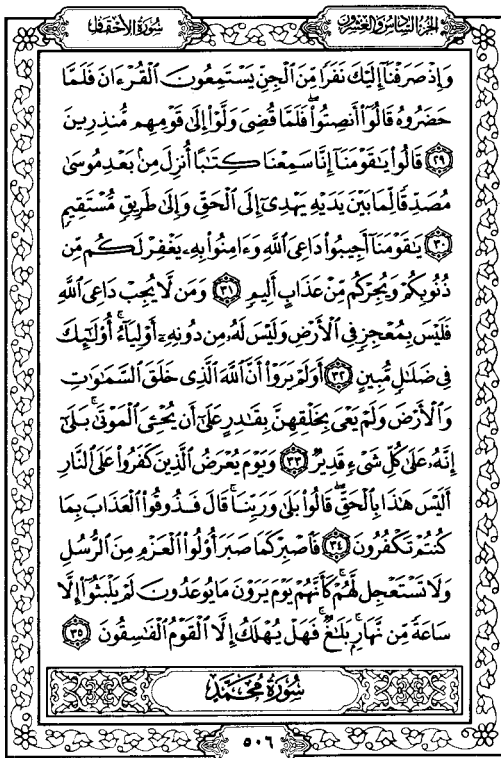 الجزء السادس والعشرون
سورة الأحقاف
وَإِذْ صَرَفْنَآ إِلَيْكَ نَفَرًا مِّنَ ٱلْجِنِّ يَسْتَمِعُونَ ٱلْقُرْءَانَ فَلَمَّا
حَضَرُوهُ قَالُوٓا۟ أَنصِتُوا۟ ۖ فَلَمَّا قُضِىَ وَلَّوْا۟ إِلَىٰ قَوْمِهِم مُّنذِرِينَ
٢٩ قَالُوا۟ يَـٰقَوْمَنَآ إِنَّا سَمِعْنَا كِتَـٰبًا أُنزِلَ مِنۢ بَعْدِ مُوسَىٰ
مُصَدِّقًا لِّمَا بَيْنَ يَدَيْهِ يَهْدِىٓ إِلَى ٱلْحَقِّ وَإِلَىٰ طَرِيقٍ مُّسْتَقِيمٍ
٣٠ يَـٰقَوْمَنَآ أَجِيبُوا۟ دَاعِىَ ٱللَّهِ وَءَامِنُوا۟ بِهِۦ يَغْفِرْ لَكُم مِّن
ذُنُوبِكُمْ وَيُجِرْكُم مِّنْ عَذَابٍ أَلِيمٍ ٣١ وَمَن لَّا يُجِبْ دَاعِىَ ٱللَّهِ
فَلَيْسَ بِمُعْجِزٍ فِى ٱلْأَرْضِ وَلَيْسَ لَهُۥ مِن دُونِهِۦٓ أَوْلِيَآءُ ۚ أُو۟لَـٰٓئِكَ
فِى ضَلَـٰلٍ مُّبِينٍ ٣٢ أَوَلَمْ يَرَوْا۟ أَنَّ ٱللَّهَ ٱلَّذِى خَلَقَ ٱلسَّمَـٰوَٰتِ
وَٱلْأَرْضَ وَلَمْ يَعْىَ بِخَلْقِهِنَّ بِقَـٰدِرٍ عَلَىٰٓ أَن يُحْـِۧىَ ٱلْمَوْتَىٰ ۚ بَلَىٰٓ
إِنَّهُۥ عَلَىٰ كُلِّ شَىْءٍ قَدِيرٌ ٣٣ وَيَوْمَ يُعْرَضُ ٱلَّذِينَ كَفَرُوا۟ عَلَى ٱلنَّارِ
أَلَيْسَ هَـٰذَا بِٱلْحَقِّ ۖ قَالُوا۟ بَلَىٰ وَرَبِّنَا ۚ قَالَ فَذُوقُوا۟ ٱلْعَذَابَ بِمَا
كُنتُمْ تَكْفُرُونَ ٣٤ فَٱصْبِرْ كَمَا صَبَرَ أُو۟لُوا۟ ٱلْعَزْمِ مِنَ ٱلرُّسُلِ
وَلَا تَسْتَعْجِل لَّهُمْ ۚ كَأَنَّهُمْ يَوْمَ يَرَوْنَ مَا يُوعَدُونَ لَمْ يَلْبَثُوٓا۟ إِلَّا
سَاعَةً مِّن نَّهَارٍۭ ۚ بَلَـٰغٌ ۚ فَهَلْ يُهْلَكُ إِلَّا ٱلْقَوْمُ ٱلْفَـٰسِقُونَ ٣٥
سورة محمد
٥٠٦